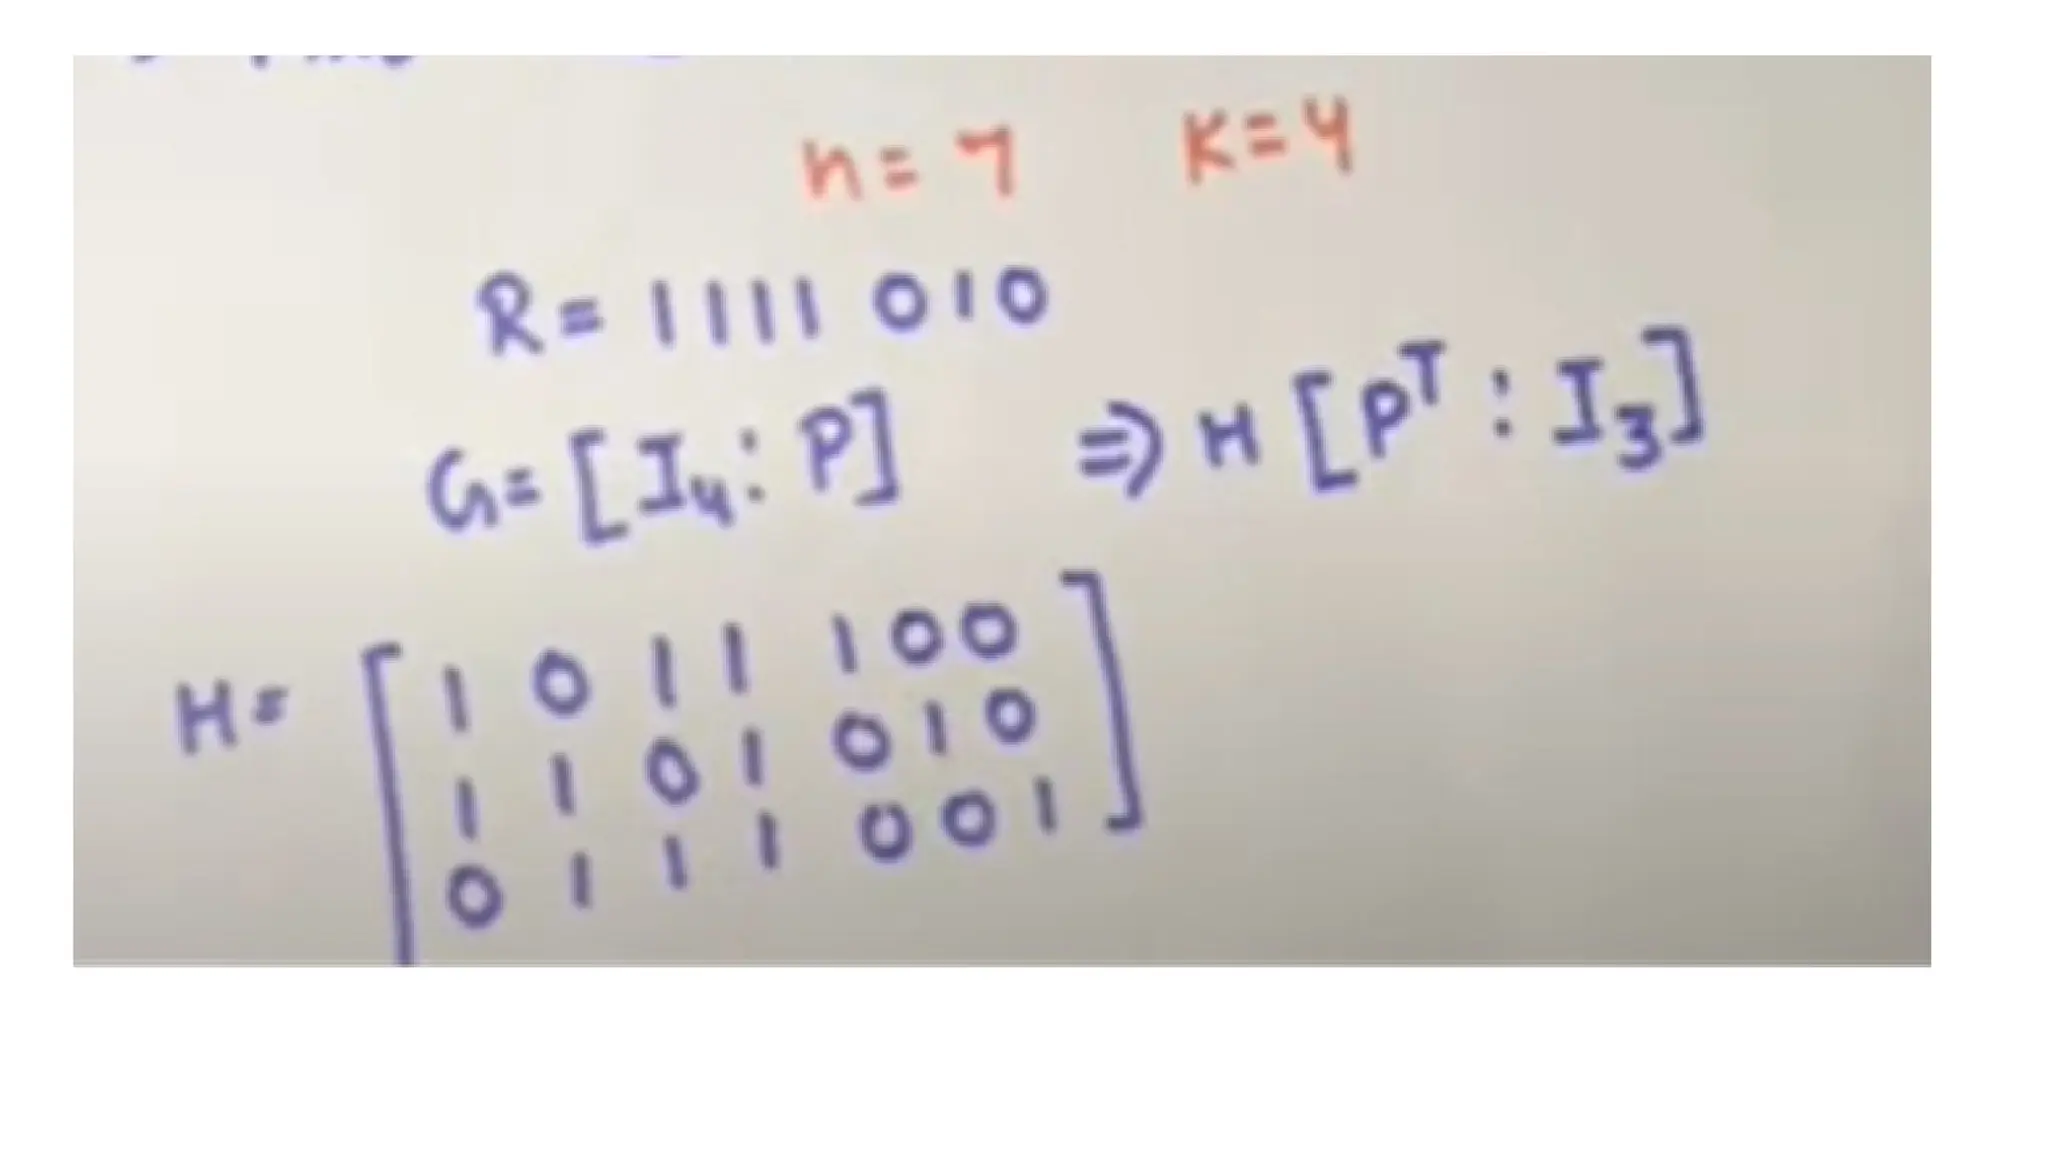 n=7 K=4
R= 1111 010
G=[I4: P] ⇒ H [P^T : I3]
H= [1 0 1 1 1 0 0
1 1 0 1 0 1 0
0 1 1 1 0 0 1]